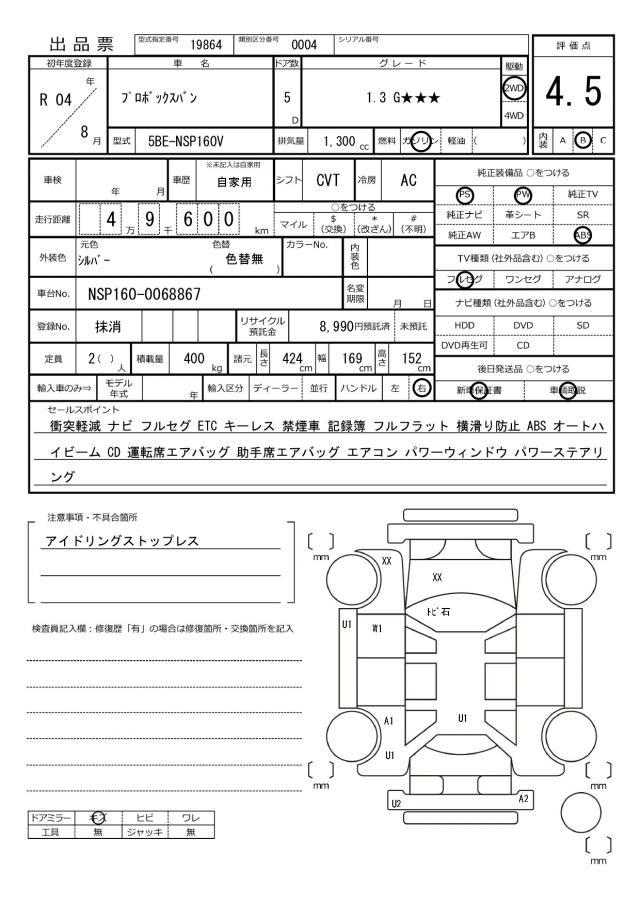 出品票
型式指定番号 19864 類別区分番号 0004 シリアル番号
評価点
4.5
内装 A B C
初年度登録 車名 ドア数 グレード 駆動
R 04 年 8 月
プロボックスバン 5 D 1.3 G★★★ 2WD 4WD
型式 5BE-NSP160V 排気量 1,300 cc 燃料 ガソリン 軽油 ( )
車検 年 月 車歴 ※未記入は自家用 自家用 シフト CVT 冷房 AC
走行距離 4 万 9 千 6 0 0 km
○をつける
マイル $(交換) *(改ざん) #(不明)
外装色 元色 シルバー 色替 ( 色替無 ) カラーNo. 内装色
車台No. NSP160-0068867 名変期限 月 日
登録No. 抹消 リサイクル預託金 8,990円預託済 未預託
定員 2( )人 積載量 400 kg 諸元 長さ 424 cm 幅 169 cm 高さ 152 cm
輸入車のみ⇒ モデル年式 年 輸入区分 ディーラー 並行 ハンドル 左 右
純正装備品 ○をつける
PS PW 純正TV
純正ナビ 革シート SR
純正AW エアB ABS
TV種類 (社外品含む) ○をつける
フルセグ ワンセグ アナログ
ナビ種類 (社外品含む) ○をつける
HDD DVD SD
DVD再生可 CD
後日発送品 ○をつける
新車保証書 車輌取説
セールスポイント
衝突軽減 ナビ フルセグ ETC キーレス 禁煙車 記録簿 フルフラット 横滑り防止 ABS オートハ
イビーム CD 運転席エアバッグ 助手席エアバッグ エアコン パワーウィンドウ パワーステアリ
ング
注意事項・不具合箇所
アイドリングストップレス
検査員記入欄：修復歴「有」の場合は修復箇所・交換箇所を記入
ドアミラー キズ ヒビ ワレ
工具 無 ジャッキ 無
〔 〕mm
〔 〕mm
XX
XX
トビ石
U1
W1
A1
U1
U1
〔 〕mm
〔 〕mm
U2
A2
〔 〕mm